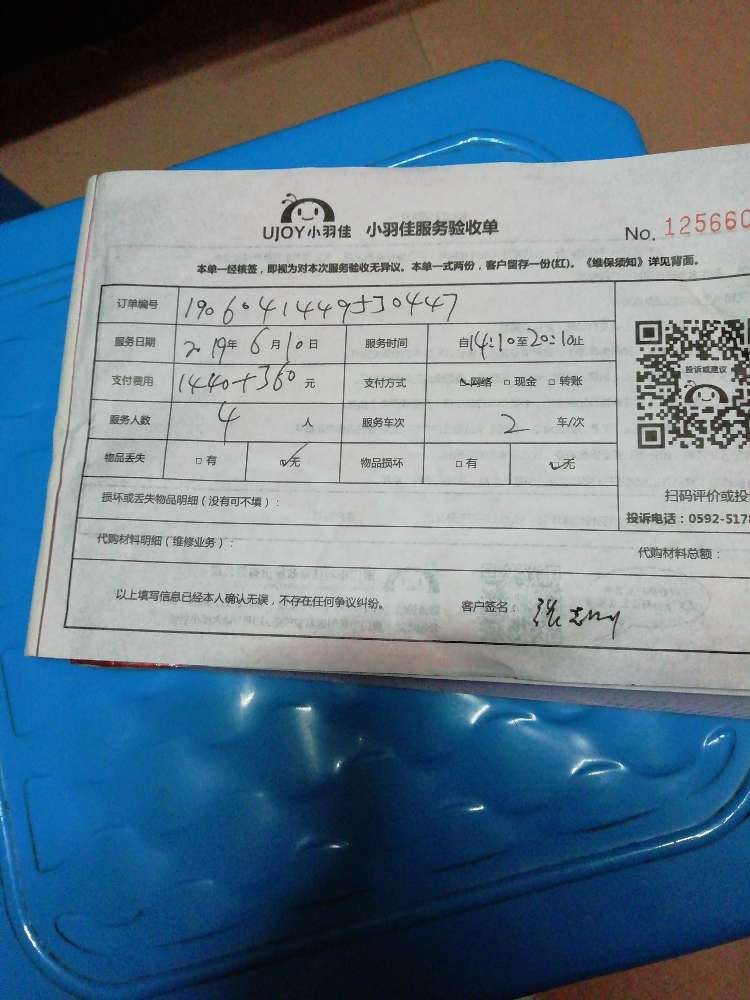 UJOY小羽佳 小羽佳服务验收单
No. 125660
本单一经核签，即视为对本次服务验收无异议。本单一式两份，客户留存一份(红)。《维保须知》详见背面。
订单编号 1906041449530447
服务日期 2019年6月10日 服务时间 自14:10至20:10止
支付费用 1440+360元 支付方式 网络 □现金 □转账
服务人数 4人 服务车次 2 车/次
物品丢失 □有 ☑无 物品损坏 □有 ☑无
投诉或建议
扫码评价或投
投诉电话：0592-5178
损坏或丢失物品明细（没有可不填）：
代购材料明细（维修业务）：
代购材料总额：
以上填写信息已经本人确认无误，不存在任何争议纠纷。 客户签名：